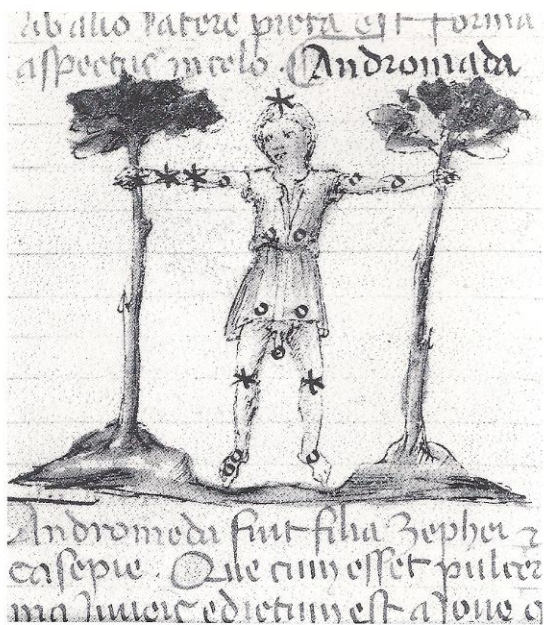 ab alio latere preta est forma
aspectus in celo. Andromada
Andromeda fuit filia Zephei ⁊
casepie. Que cum esset pulcer
ma Juneis edictum est a Joue